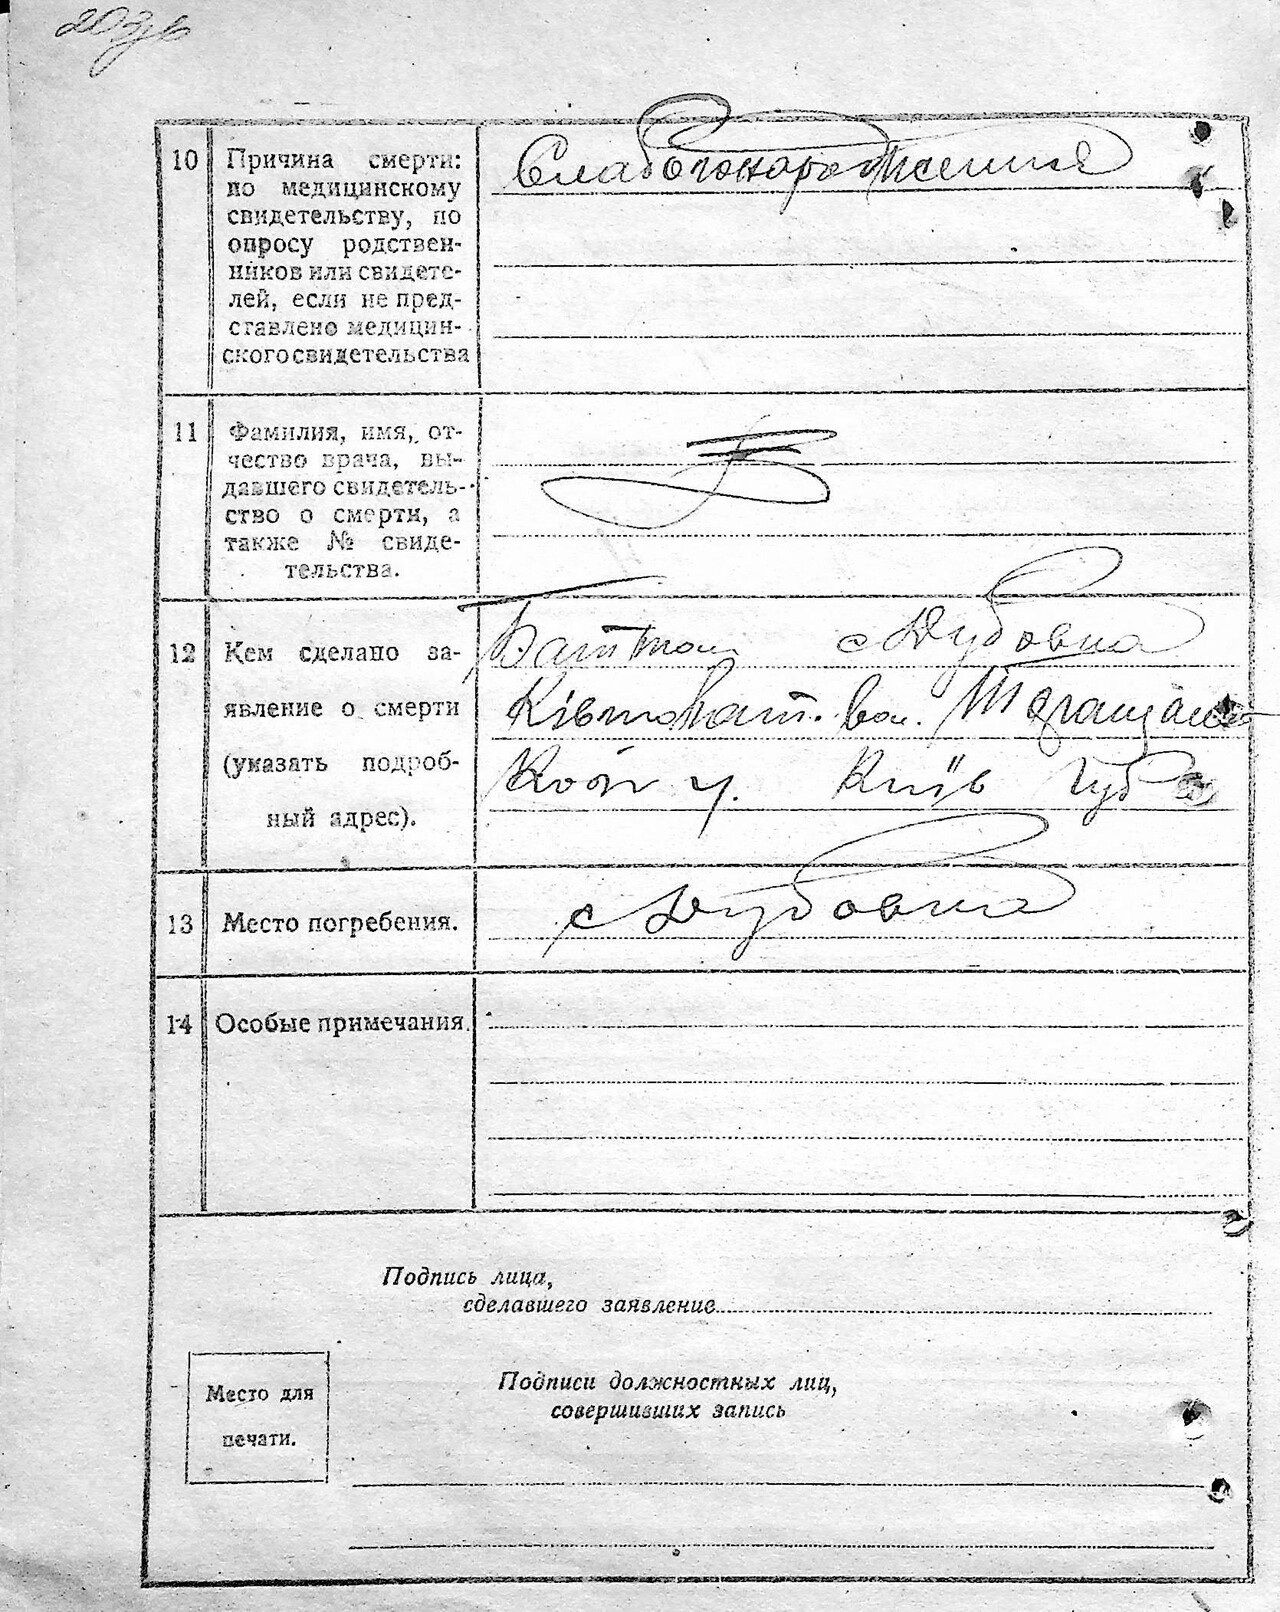 203зв
10 Причина смерти:
по медицинскому
свидетельству, по
опросу родствен-
ников или свидете-
лей, если не пред-
ставлено медицин-
ского свидетельства
Слабогонародження
11 Фамилия, имя, от-
чество врача, вы-
давшего свидетель-
ство о смерти, а
также № свиде-
тельства.
12 Кем сделано за-
явление о смерти
(указать подроб-
ный адрес).
Батьком с Дубовка
вол. Таращан
ської у. Київ губ
13 Место погребения.
с Дубовка
14 Особые примечания.
Подпись лица,
сделавшего заявление
Место для
печати.
Подписи должностных лиц,
совершивших запись